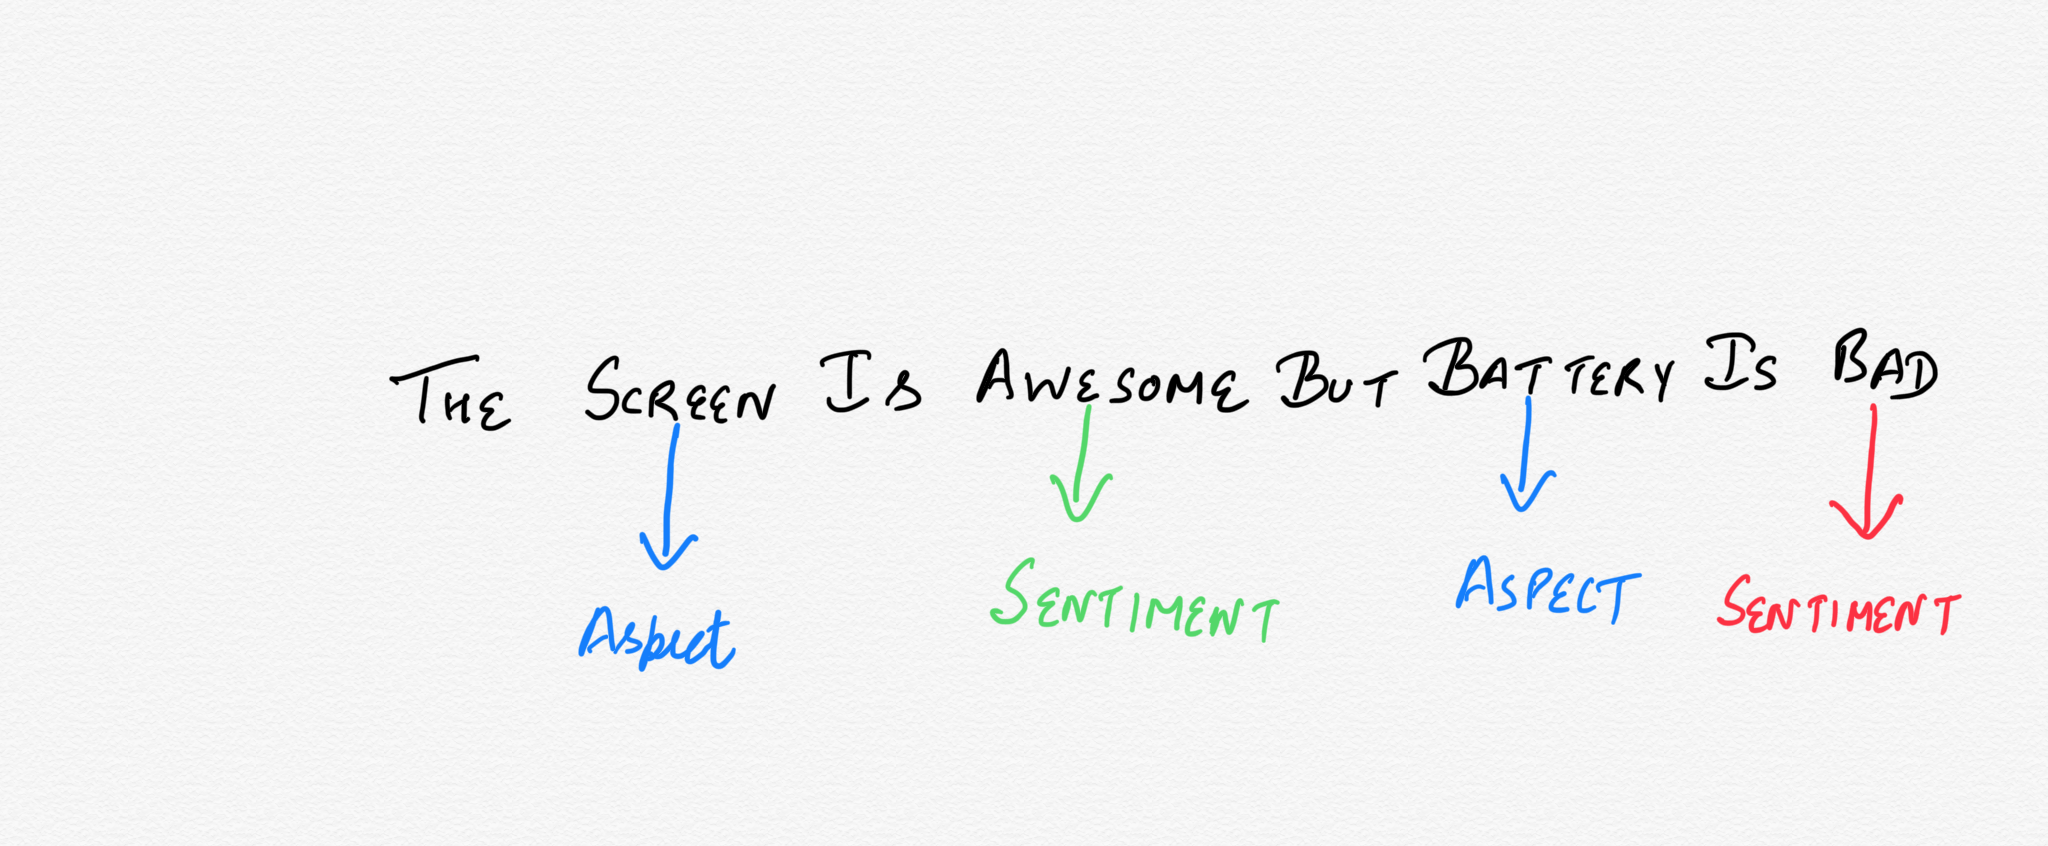 THE SCREEN IS AWESOME BUT BATTERY IS BAD
Aspect SENTIMENT ASPECT SENTIMENT